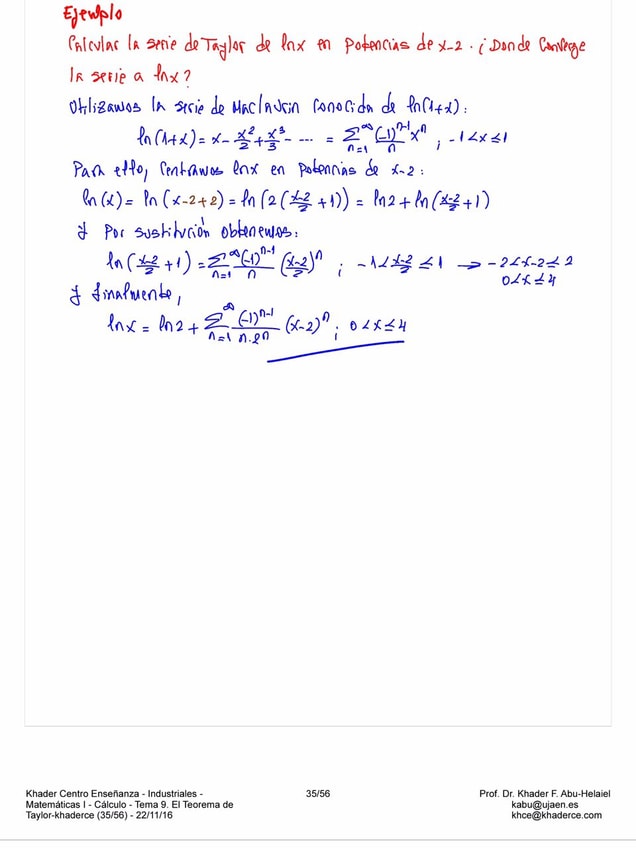 Ejemplo
Calcular la serie de Taylor de lnx en potencias de x-2. ¿Donde Converge
la serie a lnx?
Utilizamos la serie de MacLaurin Conocida de ln(1+x):
ln(1+x) = x - x²/2 + x³/3 - ... = ∑_{n=1}^{∞} (-1)^{n-1}/n x^n ; -1<x≤1
Para ello, Centramos lnx en potencias de x-2:
ln(x) = ln(x-2+2) = ln(2(x-2/2 + 1)) = ln2 + ln(x-2/2 + 1)
y Por sustitución obtenemos:
ln(x-2/2 + 1) = ∑_{n=1}^{∞} (-1)^{n-1}/n (x-2/2)^n ; -1<x-2/2≤1 → -2<x-2≤2
0<x≤4
y finalmente,
lnx = ln2 + ∑_{n=1}^{∞} (-1)^{n-1}/n·2^n (x-2)^n ; 0<x≤4
Khader Centro Enseñanza - Industriales -
Matemáticas I - Cálculo - Tema 9. El Teorema de
Taylor-khaderce (35/56) - 22/11/16
35/56
Prof. Dr. Khader F. Abu-Helaiel
kabu@ujaen.es
khce@khaderce.com